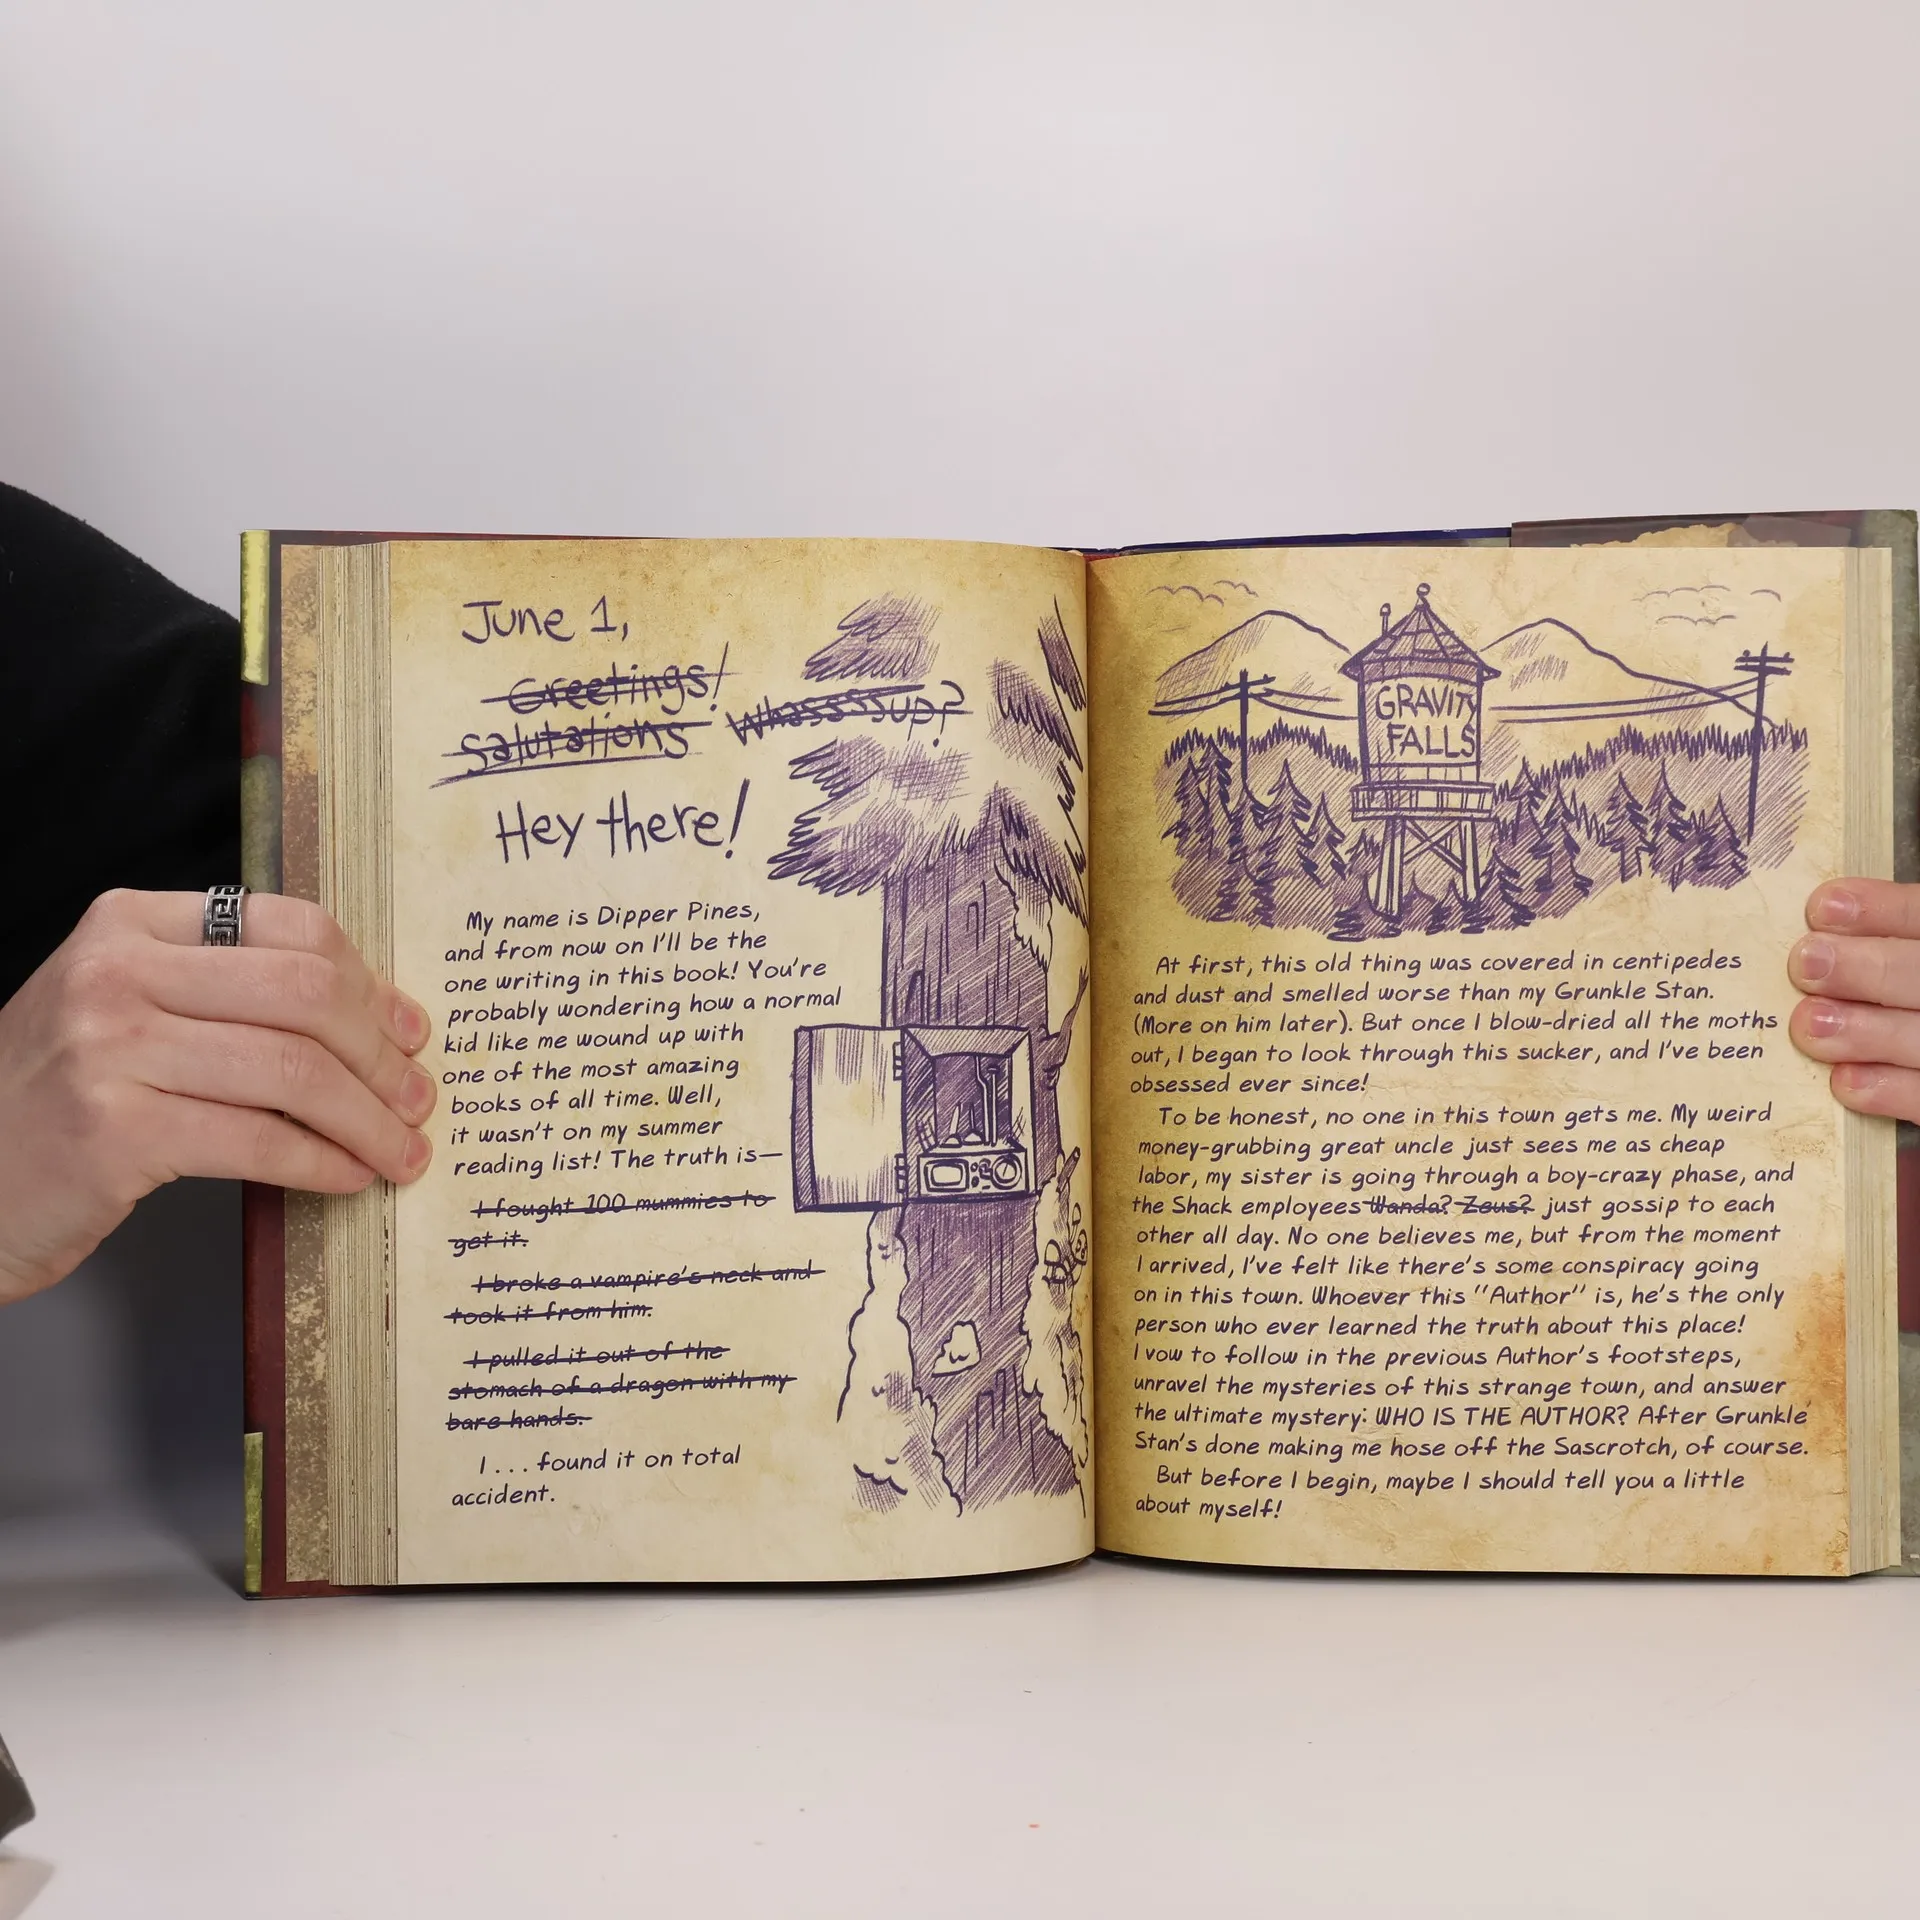 June 1,
Greetings!
Salutations Whassssup?
Hey there!
My name is Dipper Pines,
and from now on I'll be the
one writing in this book! You're
probably wondering how a normal
kid like me wound up with
one of the most amazing
books of all time. Well,
it wasn't on my summer
reading list! The truth is—
I fought 100 mummies to
get it.
I broke a vampire's neck and
took it from him.
I pulled it out of the
stomach of a dragon with my
bare hands.
I . . . found it on total
accident.
GRAVITY
FALLS
At first, this old thing was covered in centipedes
and dust and smelled worse than my Grunkle Stan.
(More on him later). But once I blow-dried all the moths
out, I began to look through this sucker, and I've been
obsessed ever since!
To be honest, no one in this town gets me. My weird
money-grubbing great uncle just sees me as cheap
labor, my sister is going through a boy-crazy phase, and
the Shack employees Wanda? Zeus? just gossip to each
other all day. No one believes me, but from the moment
I arrived, I've felt like there's some conspiracy going
on in this town. Whoever this "Author" is, he's the only
person who ever learned the truth about this place!
I vow to follow in the previous Author's footsteps,
unravel the mysteries of this strange town, and answer
the ultimate mystery: WHO IS THE AUTHOR? After Grunkle
Stan's done making me hose off the Sascrotch, of course.
But before I begin, maybe I should tell you a little
about myself!